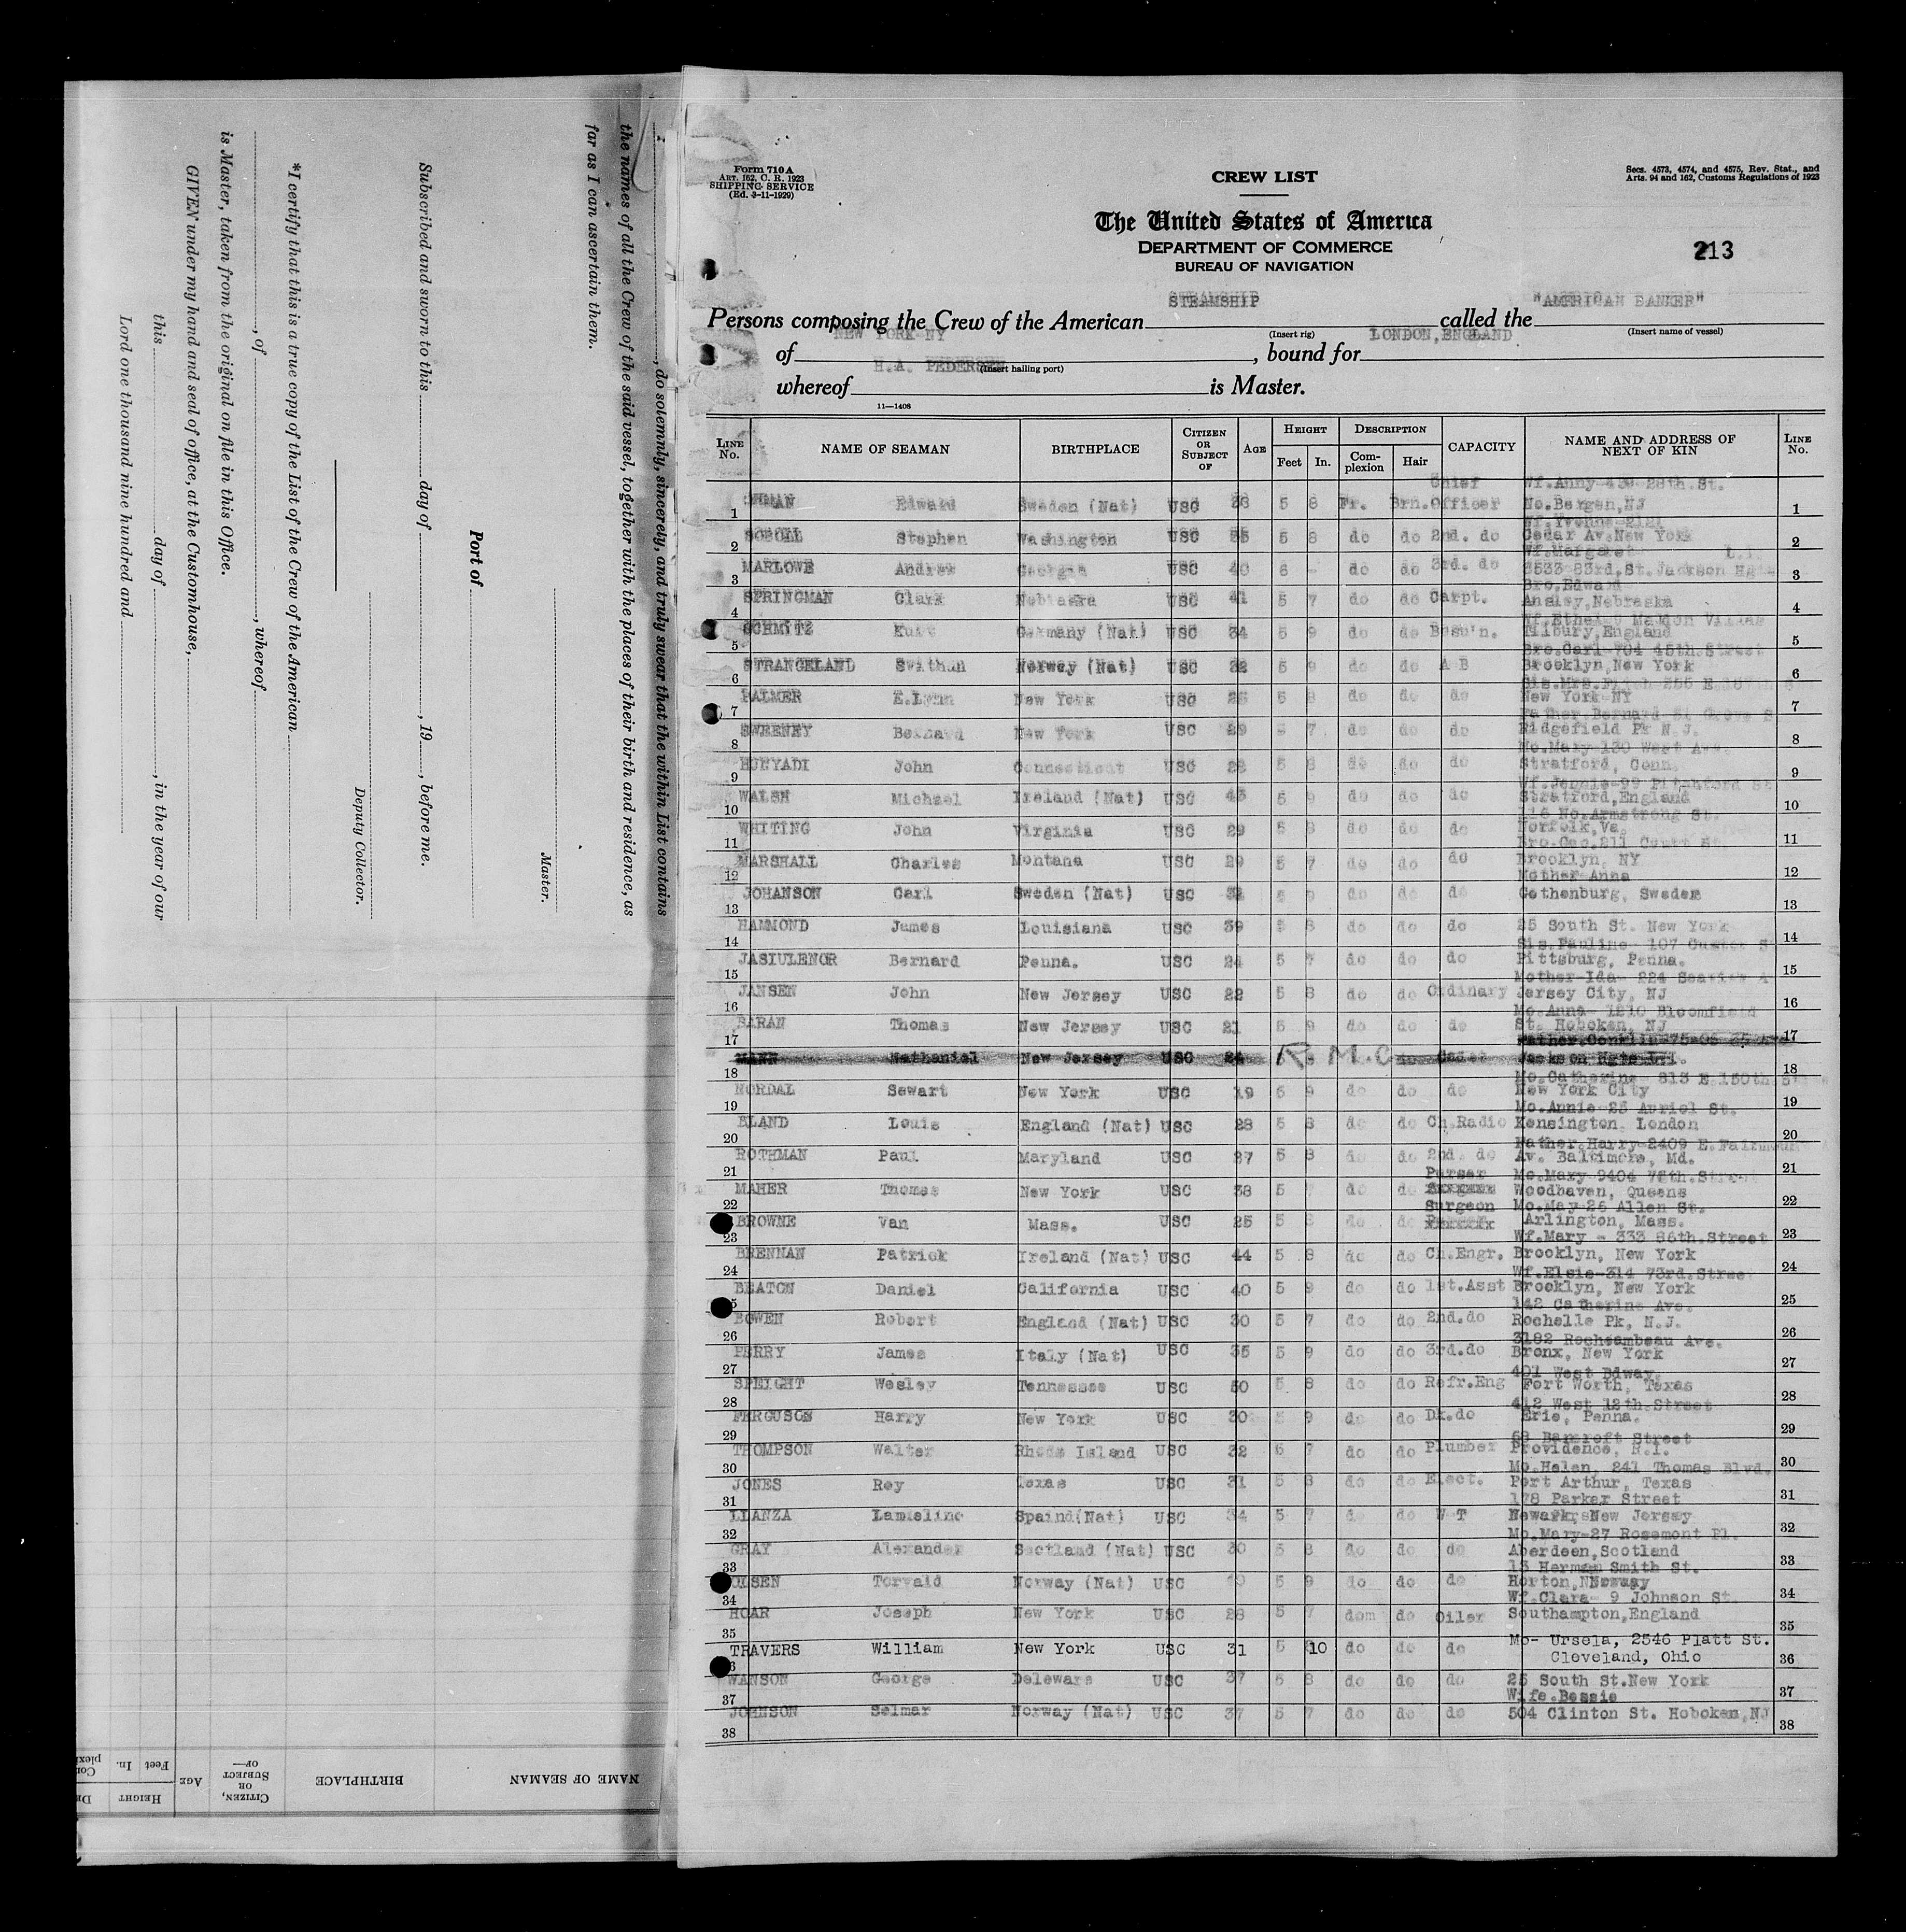 Form 710A
ART. 162, C. R. 1923
SHIPPING SERVICE
(Ed. 3-11-1929)
CREW LIST
Secs. 4573, 4574, and 4575, Rev. Stat., and
Arts. 94 and 162, Customs Regulations of 1923
The United States of America
DEPARTMENT OF COMMERCE
BUREAU OF NAVIGATION
213
STEAMSHIP "AMERICAN BANKER"
Persons composing the Crew of the American called the
(Insert rig) (Insert name of vessel)
NEW YORK NY LONDON, ENGLAND
of , bound for
H.A. PEDERSEN (Insert hailing port)
whereof is Master.
11—1408
LINE No. NAME OF SEAMAN BIRTHPLACE CITIZEN OR SUBJECT OF AGE HEIGHT Feet In. DESCRIPTION Complexion Hair CAPACITY NAME AND ADDRESS OF NEXT OF KIN LINE No.
Chief Wf.Anny 28th.St.
1 Edward Sweden (Nat) USC 5 8 Fr. Brn. Officer No.Bergen,NJ 1
Wf.Yvonne-2121
2 Stephen Washington USC 5 8 do do 2nd. do Cedar Av.New York 2
Wf.Margaret L.I.
3 MARLOWE Andrew Georgia USC 40 6 - do do 3rd. do 3533 83rd.St.Jackson Hgts 3
Bro.Edward
4 SPRINGMAN Clark Nebraska USC 41 5 7 do do Carpt. Ansley,Nebraska 4
Wf.Ethel
5 SCHMITZ Kurt Germany (Nat) USC 34 5 9 do do Bosu'n. Tilbury,England 5
Bro.Carl-704 45th.Street
6 STRANGELAND Svithun Norway (Nat) USC 32 5 9 do do A B Brooklyn,New York 6
Sis.Mrs.
7 PALMER E.Lynn New York USC 5 8 do do do New York NY 7
Father.Bernard
8 SWEENEY Bernard New York USC 29 7 do do do Ridgefield Pk N.J. 8
Mo.Mary-130 West Ave.
9 HUNYADI John Connecticut USC 5 8 do do do Stratford, Conn. 9
Wf.Jennie-99
10 WALSH Michael Ireland (Nat) USC 43 5 9 do do do Stratford,England 10
No.Armstrong St.
11 WHITING John Virginia USC 29 5 8 do do do Norfolk,Va. 11
Bro.Geo.211 Court St.
12 MARSHALL Charles Montana USC 29 5 7 do do do Brooklyn, NY 12
Mother Anna
13 JOHANSON Carl Sweden (Nat) USC 9 do do do Gothenburg, Sweden 13
14 HAMMOND James Louisiana USC 39 5 8 do do do 25 South St. New York 14
Sis.Pauline- 107
15 JASIULENOR Bernard Penna. USC 24 5 7 do do do Pittsburg, Penna. 15
Mother-Ida- 224
16 JANSEN John New Jersey USC 22 5 8 do do Ordinary Jersey City, NJ 16
Mo.Anna- 1210 Bloomfield
17 BARAN Thomas New Jersey USC 21 5 9 do do do St. Hoboken, NJ 17
Father.Conklin
18 MANN Nathaniel New Jersey USC 24 R.M.C do Cadet Jackson Hgts L.I. 18
Mo.Catherine- 813 E.150th.
19 NORDAL Sewart New York USC 19 5 9 do do do New York City 19
Mo.Annie-25
20 BLAND Louis England (Nat) USC 28 5 8 do do Ch.Radio Kensington London 20
Father.Harry-2409
21 ROTHMAN Paul Maryland USC 27 5 8 do do 2nd. do Av. Baltimore, Md. 21
Purser Mo.Mary 9404
22 MAHER Thomas New York USC 38 5 do do Woodhaven, Queens 22
Surgeon Mo.May-26 Allen St.
23 BROWNE Van Mass. USC 25 5 8 do do Arlington, Mass. 23
Wf.Mary - 333 86th.Street
24 BRENNAN Patrick Ireland (Nat) USC 44 5 8 do do Ch.Engr. Brooklyn, New York 24
Wf.Elsie-314 73rd.Street
25 BEATON Daniel California USC 40 5 9 do do 1st.Asst Brooklyn, New York 25
142 Catherine Ave.
26 BOWEN Robert England (Nat) USC 30 5 7 do do 2nd.do Rochelle Pk, N.J. 26
3182 Rochambeau Ave.
27 PERRY James Italy (Nat) USC 35 5 9 do do 3rd.do Bronx, New York 27
401 West Bdway.
28 SPEIGHT Wesley Tennessee USC 50 5 8 do do Refr.Eng Fort Worth, Texas 28
412 West 12th.Street
29 FERGUSON Harry New York USC 30 5 9 do do Dk.do Erie, Penna. 29
Bancroft Street
30 THOMPSON Walter Rhode Island USC 32 7 do do Plumber Providence, R.I. 30
Mo.Helen, 241 Thomas Blvd.
31 JONES Roy Texas USC 31 5 8 do do Elect. Port Arthur, Texas 31
178 Parker Street
32 LLANZA Spaind(Nat) USC 34 5 7 do do W T New Jersey 32
Mo.Mary-27 Rosemont Pl.
33 GRAY Alexander Scotland (Nat) USC 30 5 8 do do do Aberdeen,Scotland 33
13 Herman Smith St.
34 OLSEN Torvald Norway (Nat) USC 5 9 do do do Horton, 34
Wf.Clara- 9 Johnson St.
35 HOAR Joseph New York USC 28 5 7 dom do Oiler Southampton,England 35
Mo- Ursela, 2546 Platt St.
36 TRAVERS William New York USC 31 5 10 do do do Cleveland, Ohio 36
37 WANSON George Deleware USC 37 5 8 do do do 25 South St.New York 37
Wife.Bessie
38 JOHNSON Selmar Norway (Nat) USC 37 5 7 do do do 504 Clinton St. Hoboken,NJ 38
I , do solemnly, sincerely, and truly swear that the within List contains
the names of all the Crew of the said vessel, together with the places of their birth and residence, as
far as I can ascertain them.
Master.
Subscribed and sworn to this day of , 19 , before me.
Port of
Deputy Collector.
*I certify that this is a true copy of the List of the Crew of the American
, of , whereof
is Master, taken from the original on file in this Office.
GIVEN under my hand and seal of office, at the Customhouse,
this day of , in the year of our
Lord one thousand nine hundred and
NAME OF SEAMAN BIRTHPLACE CITIZEN, OR SUBJECT OF— AGE HEIGHT Feet In.